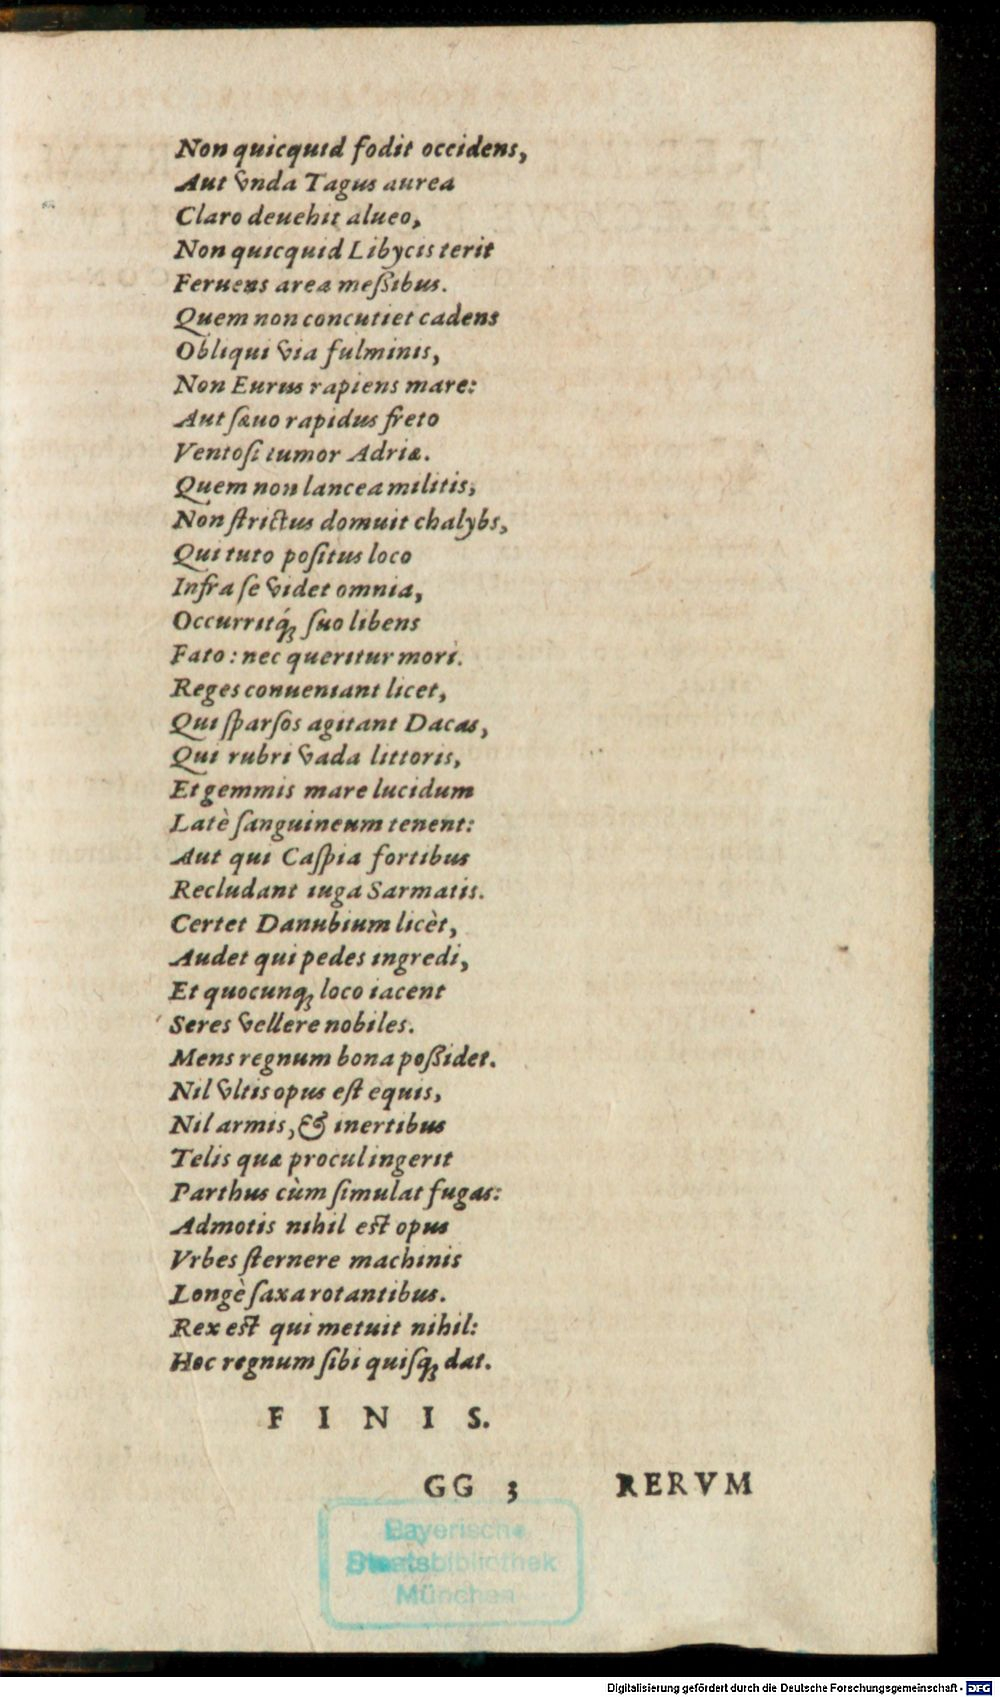 Non quicquid fodit occidens,
Aut vnda Tagus aurea
Claro deuehit alueo,
Non quicquid Libycis terit
Feruens area meßibus.
Quem non concutiet cadens
Obliqui via fulminis,
Non Eurus rapiens mare:
Aut ſæuo rapidus freto
Ventoſi tumor Adriæ.
Quem non lancea militis,
Non ſtrictus domuit chalybs,
Qui tuto poſitus loco
Infra ſe videt omnia,
Occurritq́ꝫ ſuo libens
Fato: nec queritur mori.
Reges conueniant licet,
Qui ſparſos agitant Dacas,
Qui rubri vada littoris,
Et gemmis mare lucidum
Latè ſanguineum tenent:
Aut qui Caſpia fortibus
Recludant iuga Sarmatis.
Certet Danubium licèt,
Audet qui pedes ingredi,
Et quocunqꝫ loco iacent
Seres vellere nobiles.
Mens regnum bona poßidet.
Nil vltis opus eſt equis,
Nil armis, & inertibus
Telis quæ procul ingerit
Parthus cùm ſimulat fugas:
Admotis nihil eſt opus
Vrbes ſternere machinis
Longè ſaxa rotantibus.
Rex eſt qui metuit nihil:
Hoc regnum ſibi quiſqꝫ dat.
FINIS.
GG 3 RERVM
Bayerische
Staatsbibliothek
München
Digitalisierung gefördert durch die Deutsche Forschungsgemeinschaft - DFG